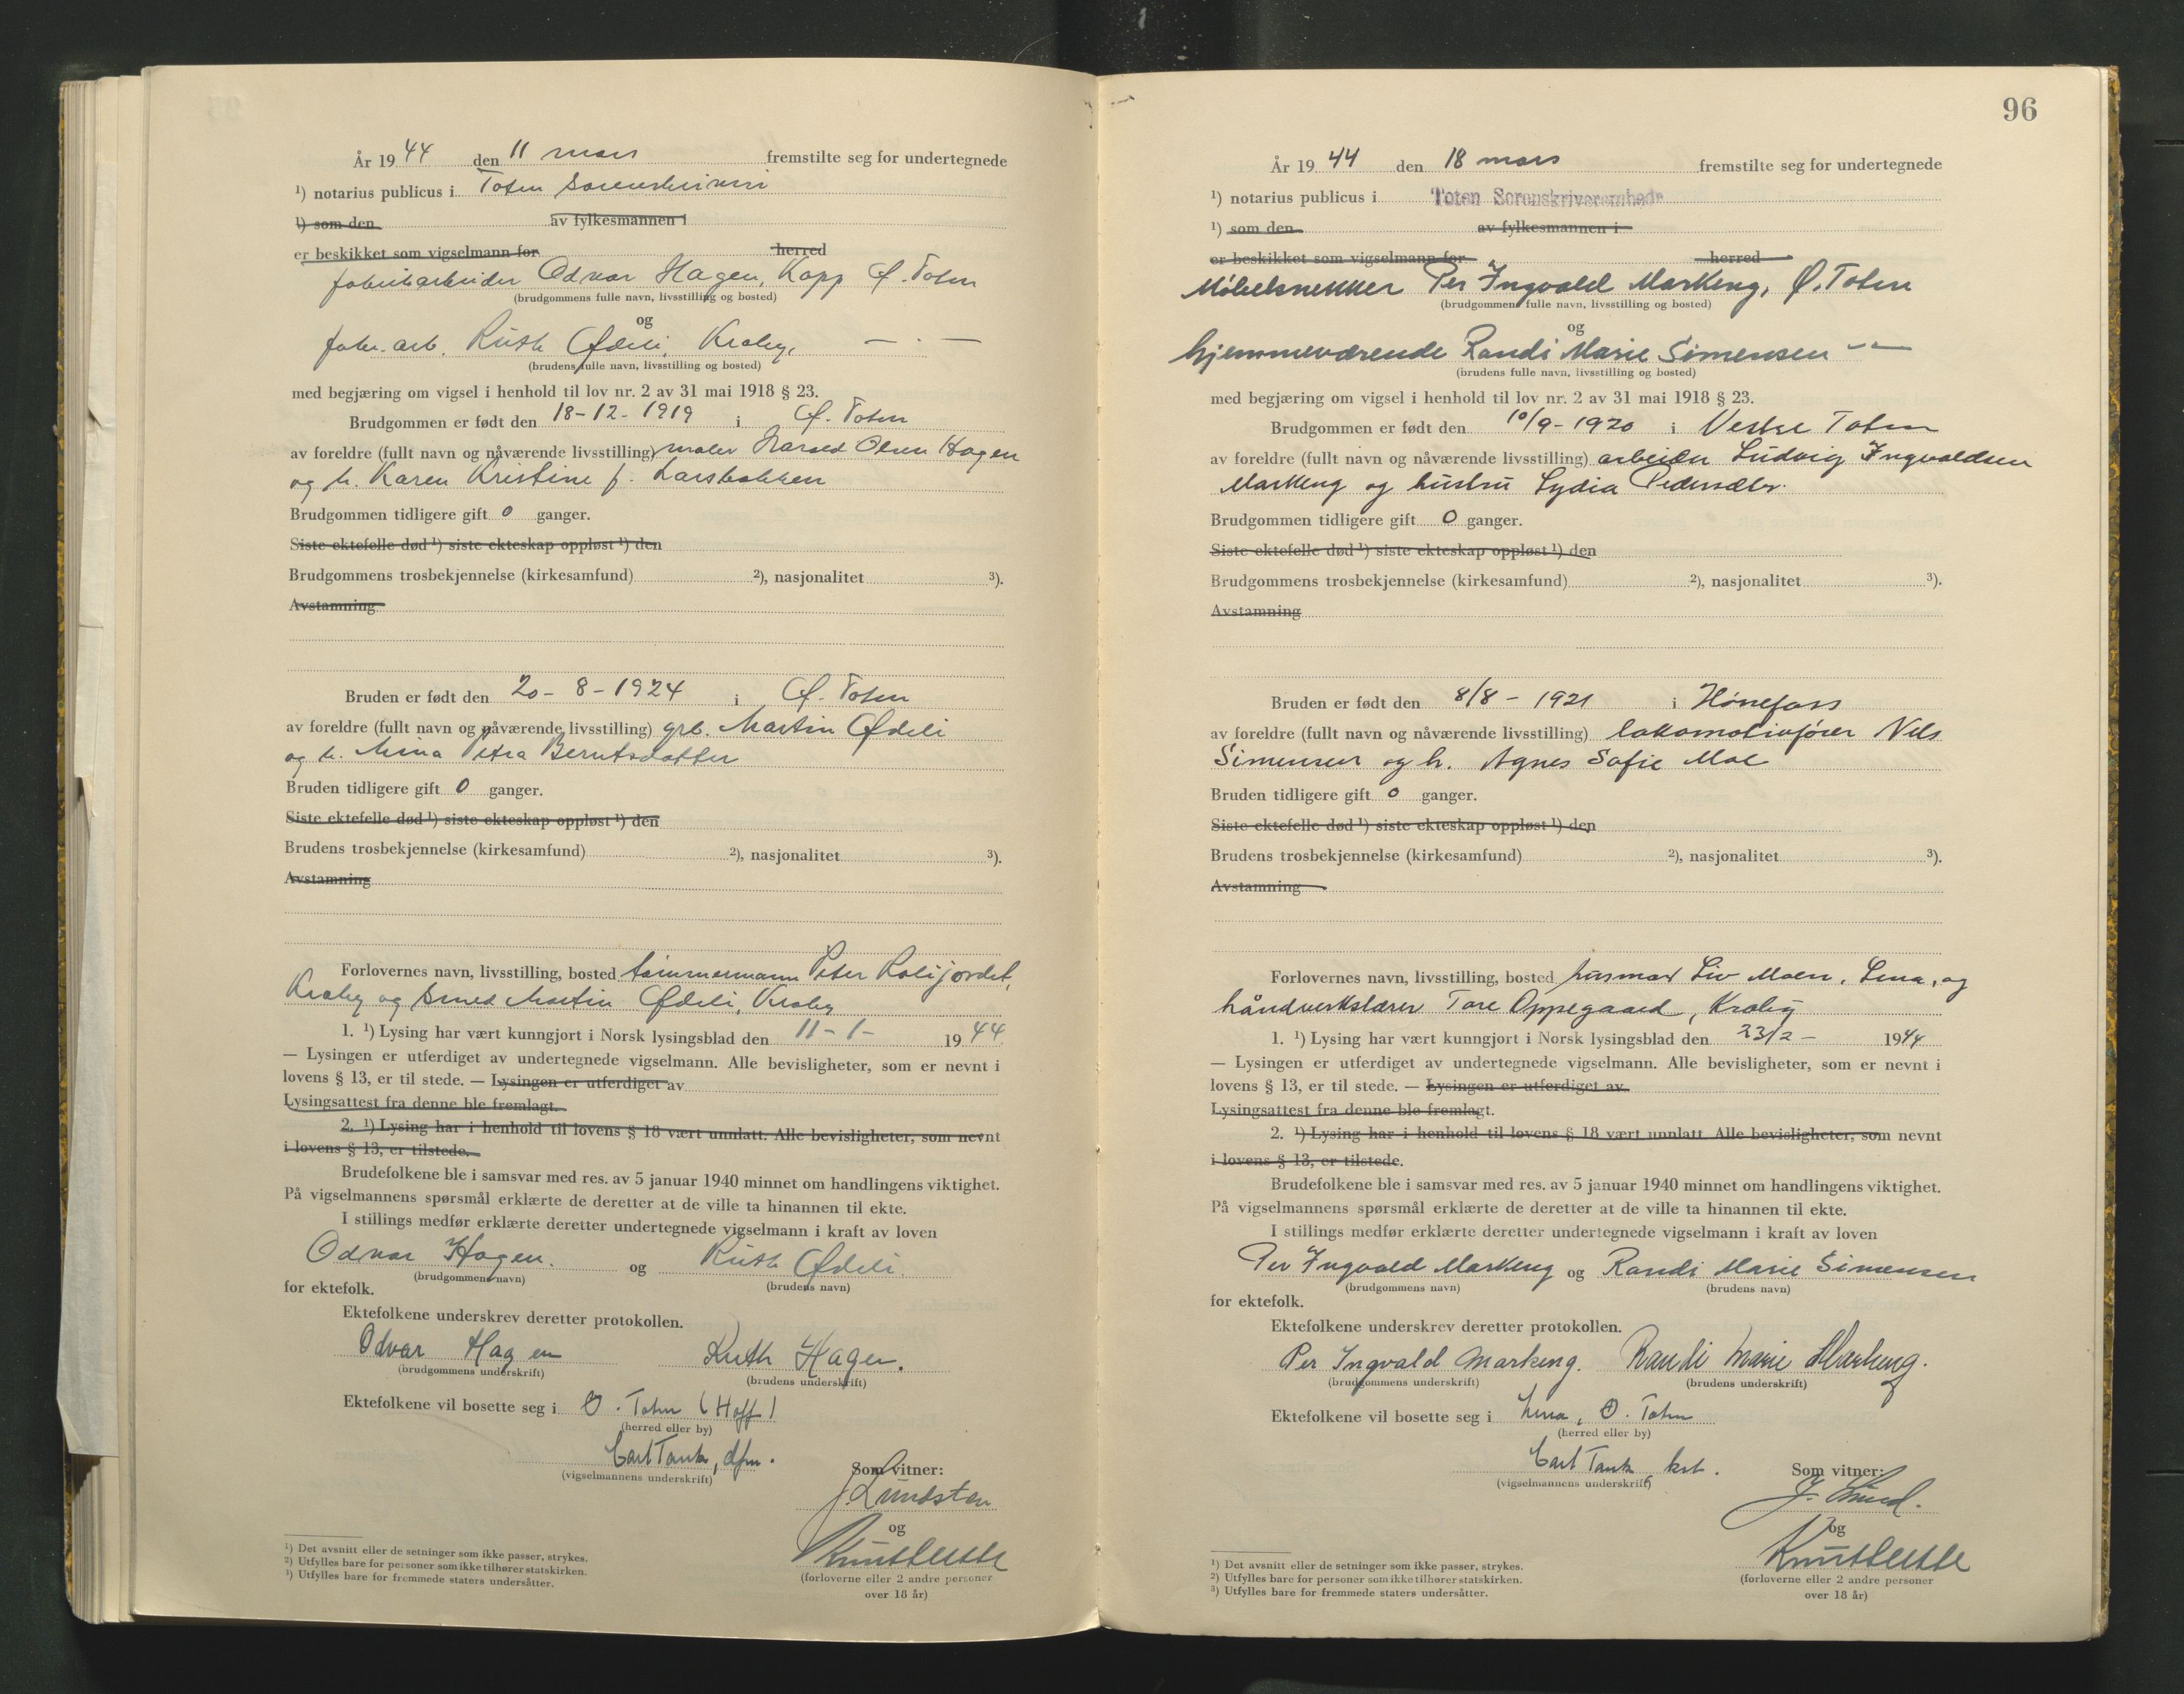 År 1944 den 11 mars fremstilte seg for undertegnede
¹) notarius publicus i Toten
¹) som den av fylkesmannen i
er beskikket som vigselmann for herred
fabrikarbeider Odvar Hagen, Kapp Ø. Toten
(brudgommens fulle navn, livsstilling og bosted)
og
fabr. arb. Ruth Ødeli, Kraby, — . —
(brudens fulle navn, livsstilling og bosted)
med begjæring om vigsel i henhold til lov nr. 2 av 31 mai 1918 § 23.
Brudgommen er født den 18-12-1919 i Ø. Toten
av foreldre (fullt navn og nåværende livsstilling) maler Harald Olsen Hagen
og h. Karen Kristine f. Larsbakken
Brudgommen tidligere gift 0 ganger.
Siste ektefelle død ¹) siste ekteskap oppløst ¹) den
Brudgommens trosbekjennelse (kirkesamfund) ²), nasjonalitet ³).
Avstamning
Bruden er født den 20-8-1924 i Ø. Toten
av foreldre (fullt navn og nåværende livsstilling) grb. Martin Ødeli
og h. Mina Petra Berntsdatter
Bruden tidligere gift 0 ganger.
Siste ektefelle død ¹) siste ekteskap oppløst ¹) den
Brudens trosbekjennelse (kirkesamfund) ²), nasjonalitet ³).
Avstamning
Forlovernes navn, livsstilling, bosted tømmermann Peter
Kraby og Martin Ødeli, Kraby
1. ¹) Lysing har vært kunngjort i Norsk lysingsblad den 11-1- 1944
— Lysingen er utferdiget av undertegnede vigselmann. Alle bevisligheter, som er nevnt i
lovens § 13, er til stede. — Lysingen er utferdiget av
Lysingsattest fra denne ble fremlagt.
2. ¹) Lysing har i henhold til lovens § 18 vært unnlatt. Alle bevisligheter, som nevnt
i lovens § 13, er tilstede.
Brudefolkene ble i samsvar med res. av 5 januar 1940 minnet om handlingens viktighet.
På vigselmannens spørsmål erklærte de deretter at de ville ta hinannen til ekte.
I stillings medfør erklærte deretter undertegnede vigselmann i kraft av loven
Odvar Hagen. og Ruth Ødeli.
(brudgommens navn) (brudens navn)
for ektefolk.
Ektefolkene underskrev deretter protokollen.
Odvar Hagen Ruth Hagen.
(brudgommens underskrift) (brudens underskrift)
Ektefolkene vil bosette seg i Ø. Toten (Hoff)
(herred eller by)
Carl Tank, dfm.
(vigselmannens underskrift)
Som vitner:
J. Lundsten
og
(forloverne eller 2 andre personer
over 18 år)
¹) Det avsnitt eller de setninger som ikke passer, strykes.
²) Utfylles bare for personer som ikke tilhører statskirken.
³) Utfylles bare for fremmede staters undersåtter.
96
År 1944 den 18 mars fremstilte seg for undertegnede
¹) notarius publicus i Toten Sorenskriverembede
¹) som den av fylkesmannen i
er beskikket som vigselmann for herred
Møbelsnekker Per Ingvald Markeng, Ø. Toten
(brudgommens fulle navn, livsstilling og bosted)
og
hjemmeværende Randi Marie Simensen — —
(brudens fulle navn, livsstilling og bosted)
med begjæring om vigsel i henhold til lov nr. 2 av 31 mai 1918 § 23.
Brudgommen er født den 10/9-1920 i Vestre Toten
av foreldre (fullt navn og nåværende livsstilling) arbeider Ludvig Ingvaldsen
Markeng og hustru Lydia Pedersdtr.
Brudgommen tidligere gift 0 ganger.
Siste ektefelle død ¹) siste ekteskap oppløst ¹) den
Brudgommens trosbekjennelse (kirkesamfund) ²), nasjonalitet ³).
Avstamning
Bruden er født den 8/8-1921 i Hønefoss
av foreldre (fullt navn og nåværende livsstilling) lokomotivfører Nils
Simensen og h. Agnes Sofie Moe
Bruden tidligere gift 0 ganger.
Siste ektefelle død ¹) siste ekteskap oppløst ¹) den
Brudens trosbekjennelse (kirkesamfund) ²), nasjonalitet ³).
Avstamning
Forlovernes navn, livsstilling, bosted husmor Liv Moen, Lena, og
håndverkslærer Tore Oppegaard, Kraby
1. ¹) Lysing har vært kunngjort i Norsk lysingsblad den 23/2- 1944
— Lysingen er utferdiget av undertegnede vigselmann. Alle bevisligheter, som er nevnt i
lovens § 13, er til stede. — Lysingen er utferdiget av
Lysingsattest fra denne ble fremlagt.
2. ¹) Lysing har i henhold til lovens § 18 vært unnlatt Alle bevisligheter, som nevnt
i lovens § 13, er tilstede.
Brudefolkene ble i samsvar med res. av 5 januar 1940 minnet om handlingens viktighet.
På vigselmannens spørsmål erklærte de deretter at de ville ta hinannen til ekte.
I stillings medfør erklærte deretter undertegnede vigselmann i kraft av loven
Per Ingvald Markeng og Randi Marie Simensen
(brudgommens navn) (brudens navn)
for ektefolk.
Ektefolkene underskrev deretter protokollen.
Per Ingvald Markeng. Randi Marie Markeng.
(brudgommens underskrift) (brudens underskrift)
Ektefolkene vil bosette seg i Lena, Ø. Toten
(herred eller by)
Carl Tank, kst.
(vigselmannens underskrift)
Som vitner:
J. Lund.
og
(forloverne eller 2 andre personer
over 18 år)
¹) Det avsnitt eller de setninger som ikke passer, strykes.
²) Utfylles bare for personer som ikke tilhører statskirken.
³) Utfylles bare for fremmede staters undersåtter.